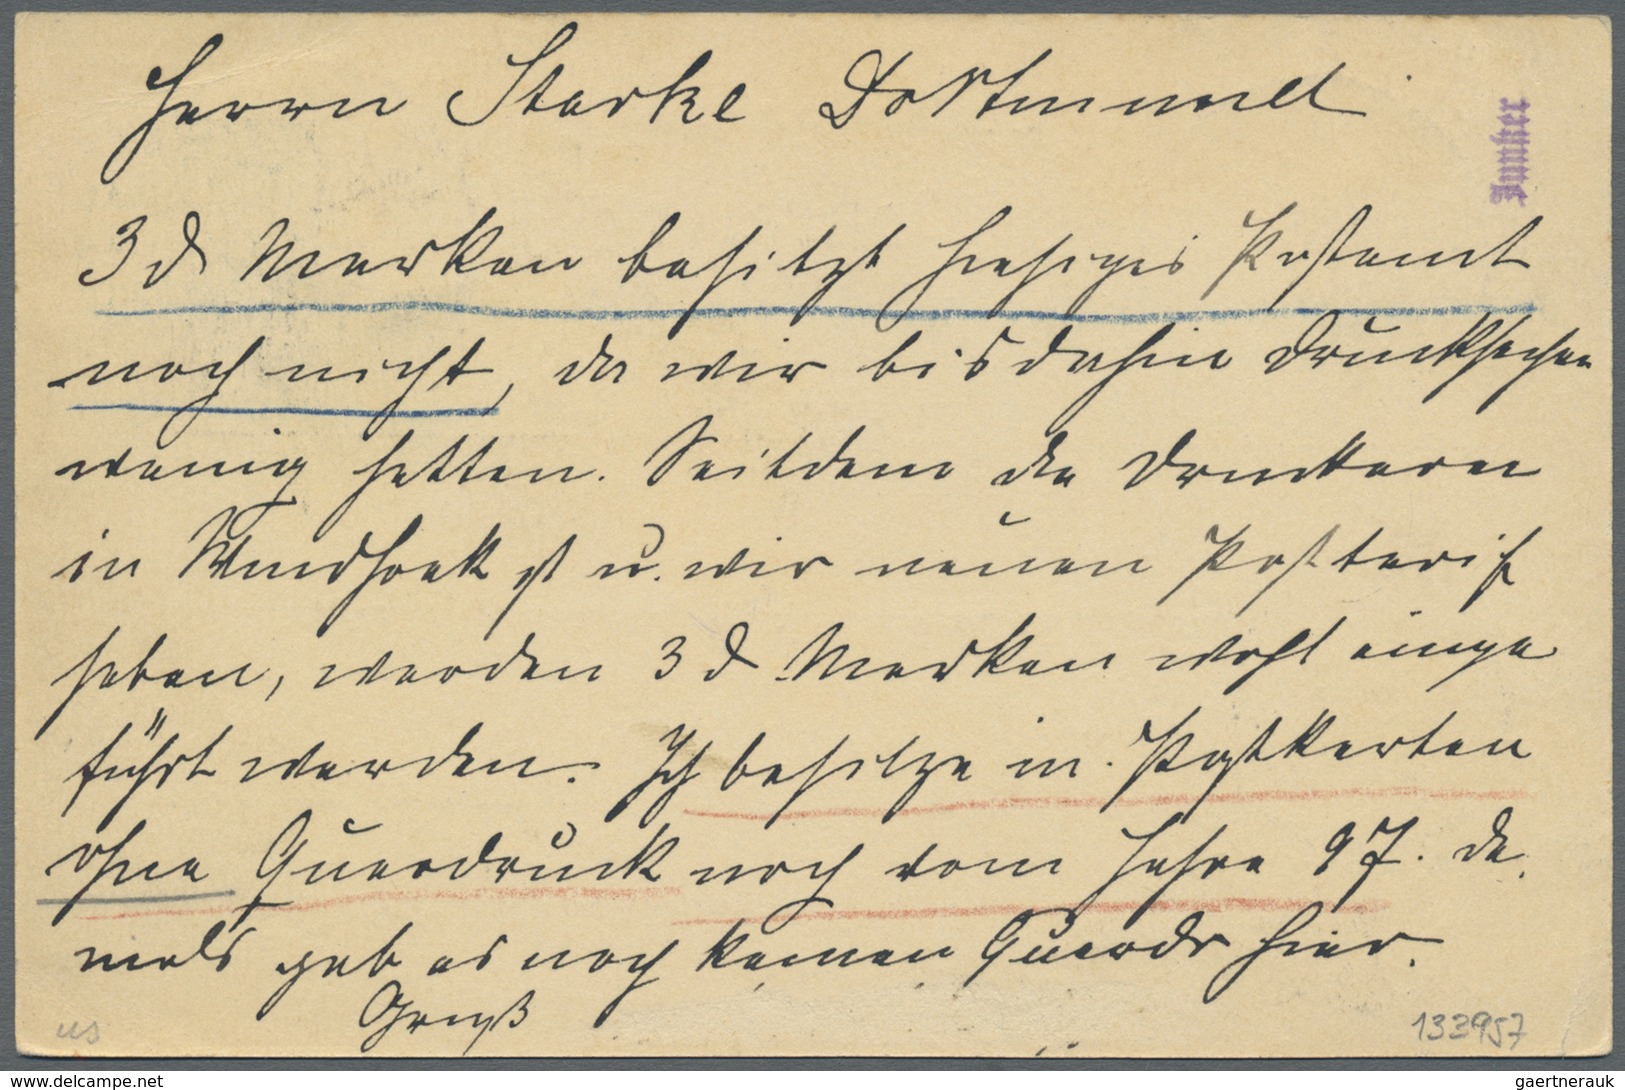 Herrn Starke Dortmund
Junker
3 ₰ Marken besitzt hiesiges Postamt
noch nicht, da wir bisdahin Drucksachen
wenig hatten. Seitdem die Druckerei
in Windhoek ist u. wir neuen Posttarif
haben, werden 3 ₰ Marken wohl einge
führt werden. Ich besitze in. Postkarten
ohne Querdruck noch vom Jahre 97. da.
mals gab es noch keinen Querdr hier.
Gruß
us
133957
www.delcampe.net
gaertnerauk